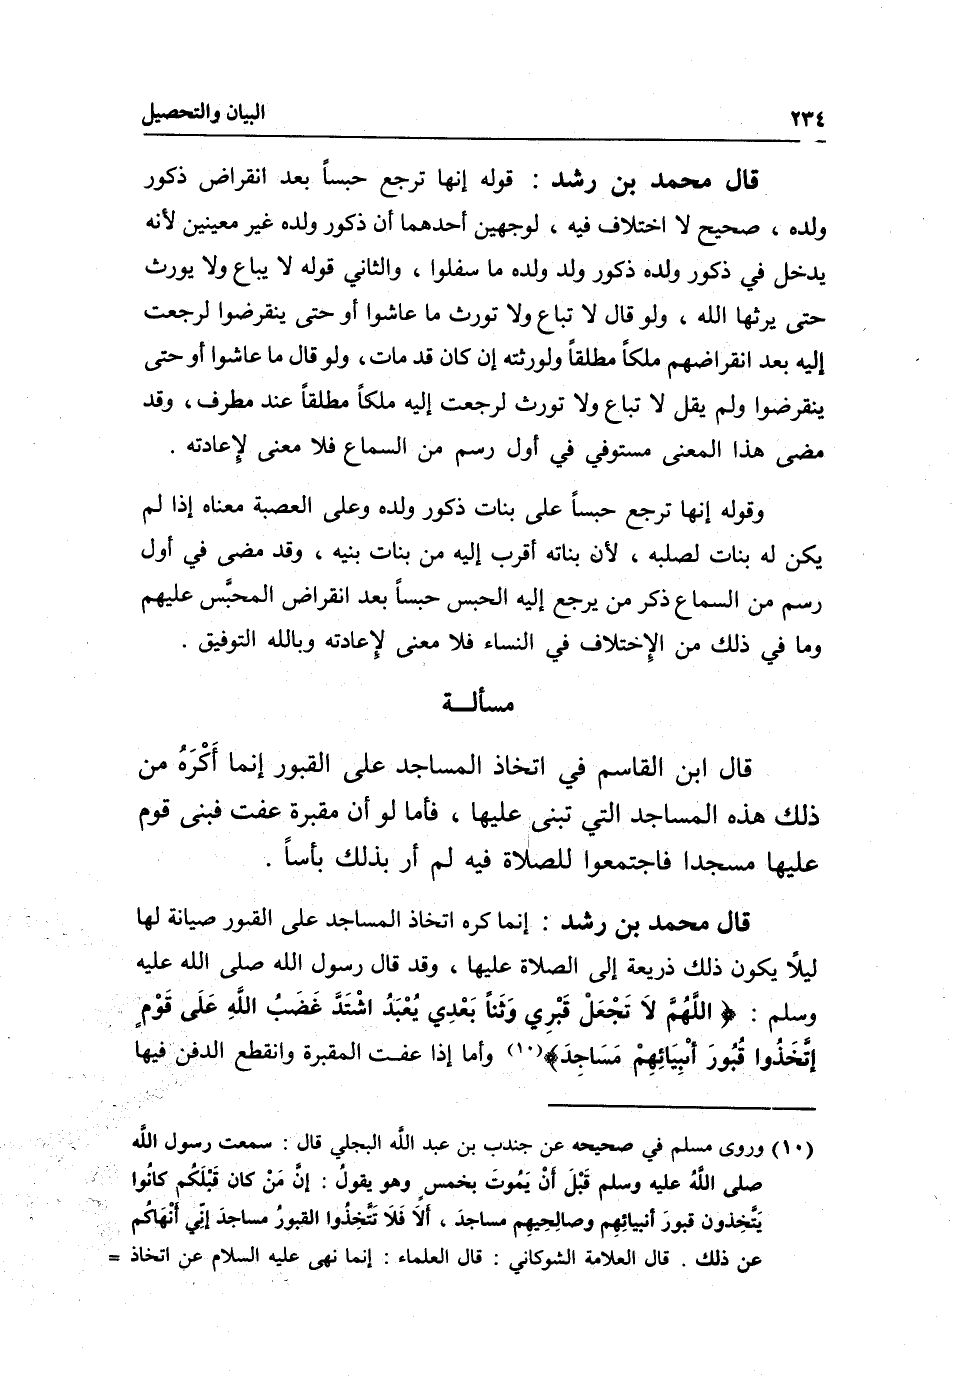 ٢٣٤ البيان والتحصيل
قال محمد بن رشد : قوله إنها ترجع حبساً بعد انقراض ذكور
ولده ، صحيح لا اختلاف فيه ، لوجهين أحدهما أن ذكور ولده غير معينين لأنه
يدخل في ذكور ولده ذكور ولد ولده ما سفلوا ، والثاني قوله لا يباع ولا يورث
حتى يرثها الله ، ولو قال لا تباع ولا تورث ما عاشوا أو حتى ينقرضوا لرجعت
إليه بعد انقراضهم ملكاً مطلقاً ولورثته إن كان قد مات، ولو قال ما عاشوا أو حتى
ينقرضوا ولم يقل لا تباع ولا تورث لرجعت إليه ملكاً مطلقاً عند مطرف، وقد
مضى هذا المعنى مستوفي في أول رسم من السماع فلا معنى لإعادته .
وقوله إنها ترجع حبساً على بنات ذكور ولده وعلى العصبة معناه إذا لم
يكن له بنات لصلبه ، لأن بناته أقرب إليه من بنات بنيه ، وقد مضى في أول
رسم من السماع ذكر من يرجع إليه الحبس حبساً بعد انقراض المحبَّس عليهم
وما في ذلك من الإختلاف في النساء فلا معنى لإعادته وبالله التوفيق .
مسألـــة
قال ابن القاسم في اتخاذ المساجد على القبور إنما أَكْرَهُ من
ذلك هذه المساجد التي تبنى عليها ، فأما لو أن مقبرة عفت فبنى قوم
عليها مسجدا فاجتمعوا للصلاة فيه لم أر بذلك بأساً .
قال محمد بن رشد : إنما كره اتخاذ المساجد على القبور صيانة لها
ليلًا يكون ذلك ذريعة إلى الصلاة عليها ، وقد قال رسول الله صلى الله عليه
وسلم : ﴿ اللَّهُمَّ لاَ تَجْعَلْ قَبْرِي وَثَناً بَعْدِي يُعْبَدُ اشْتَدَّ غَضَبُ اللَّهِ عَلَى قَوْمٍ
إتَّخَذُوا قُبُورَ أنْبِيَائِهِمْ مَسَاجِدَ﴾(١٠) وأما إذا عفت المقبرة وانقطع الدفن فيها
(١٠) وروى مسلم في صحيحه عن جندب بن عبد اللَّه البجلي قال : سمعت رسول اللَّه
صلى اللَّهُ عليه وسلم قَبْلَ أنْ يَمُوتَ بخمسٍ وهو يقولُ : إنَّ مَنْ كان قَبْلَكُم كانُوا
يَتَّخِذون قبورَ أنبيائِهم وصالِحِيهم مساجدَ ، ألَا فَلَا تَتَّخِذُوا القبورُ مساجدَ إنِّي أَنْهَاكُم
عن ذلك . قال العلامة الشوكاني : قال العلماء : إنما نهى عليه السلام عن اتخاذ =